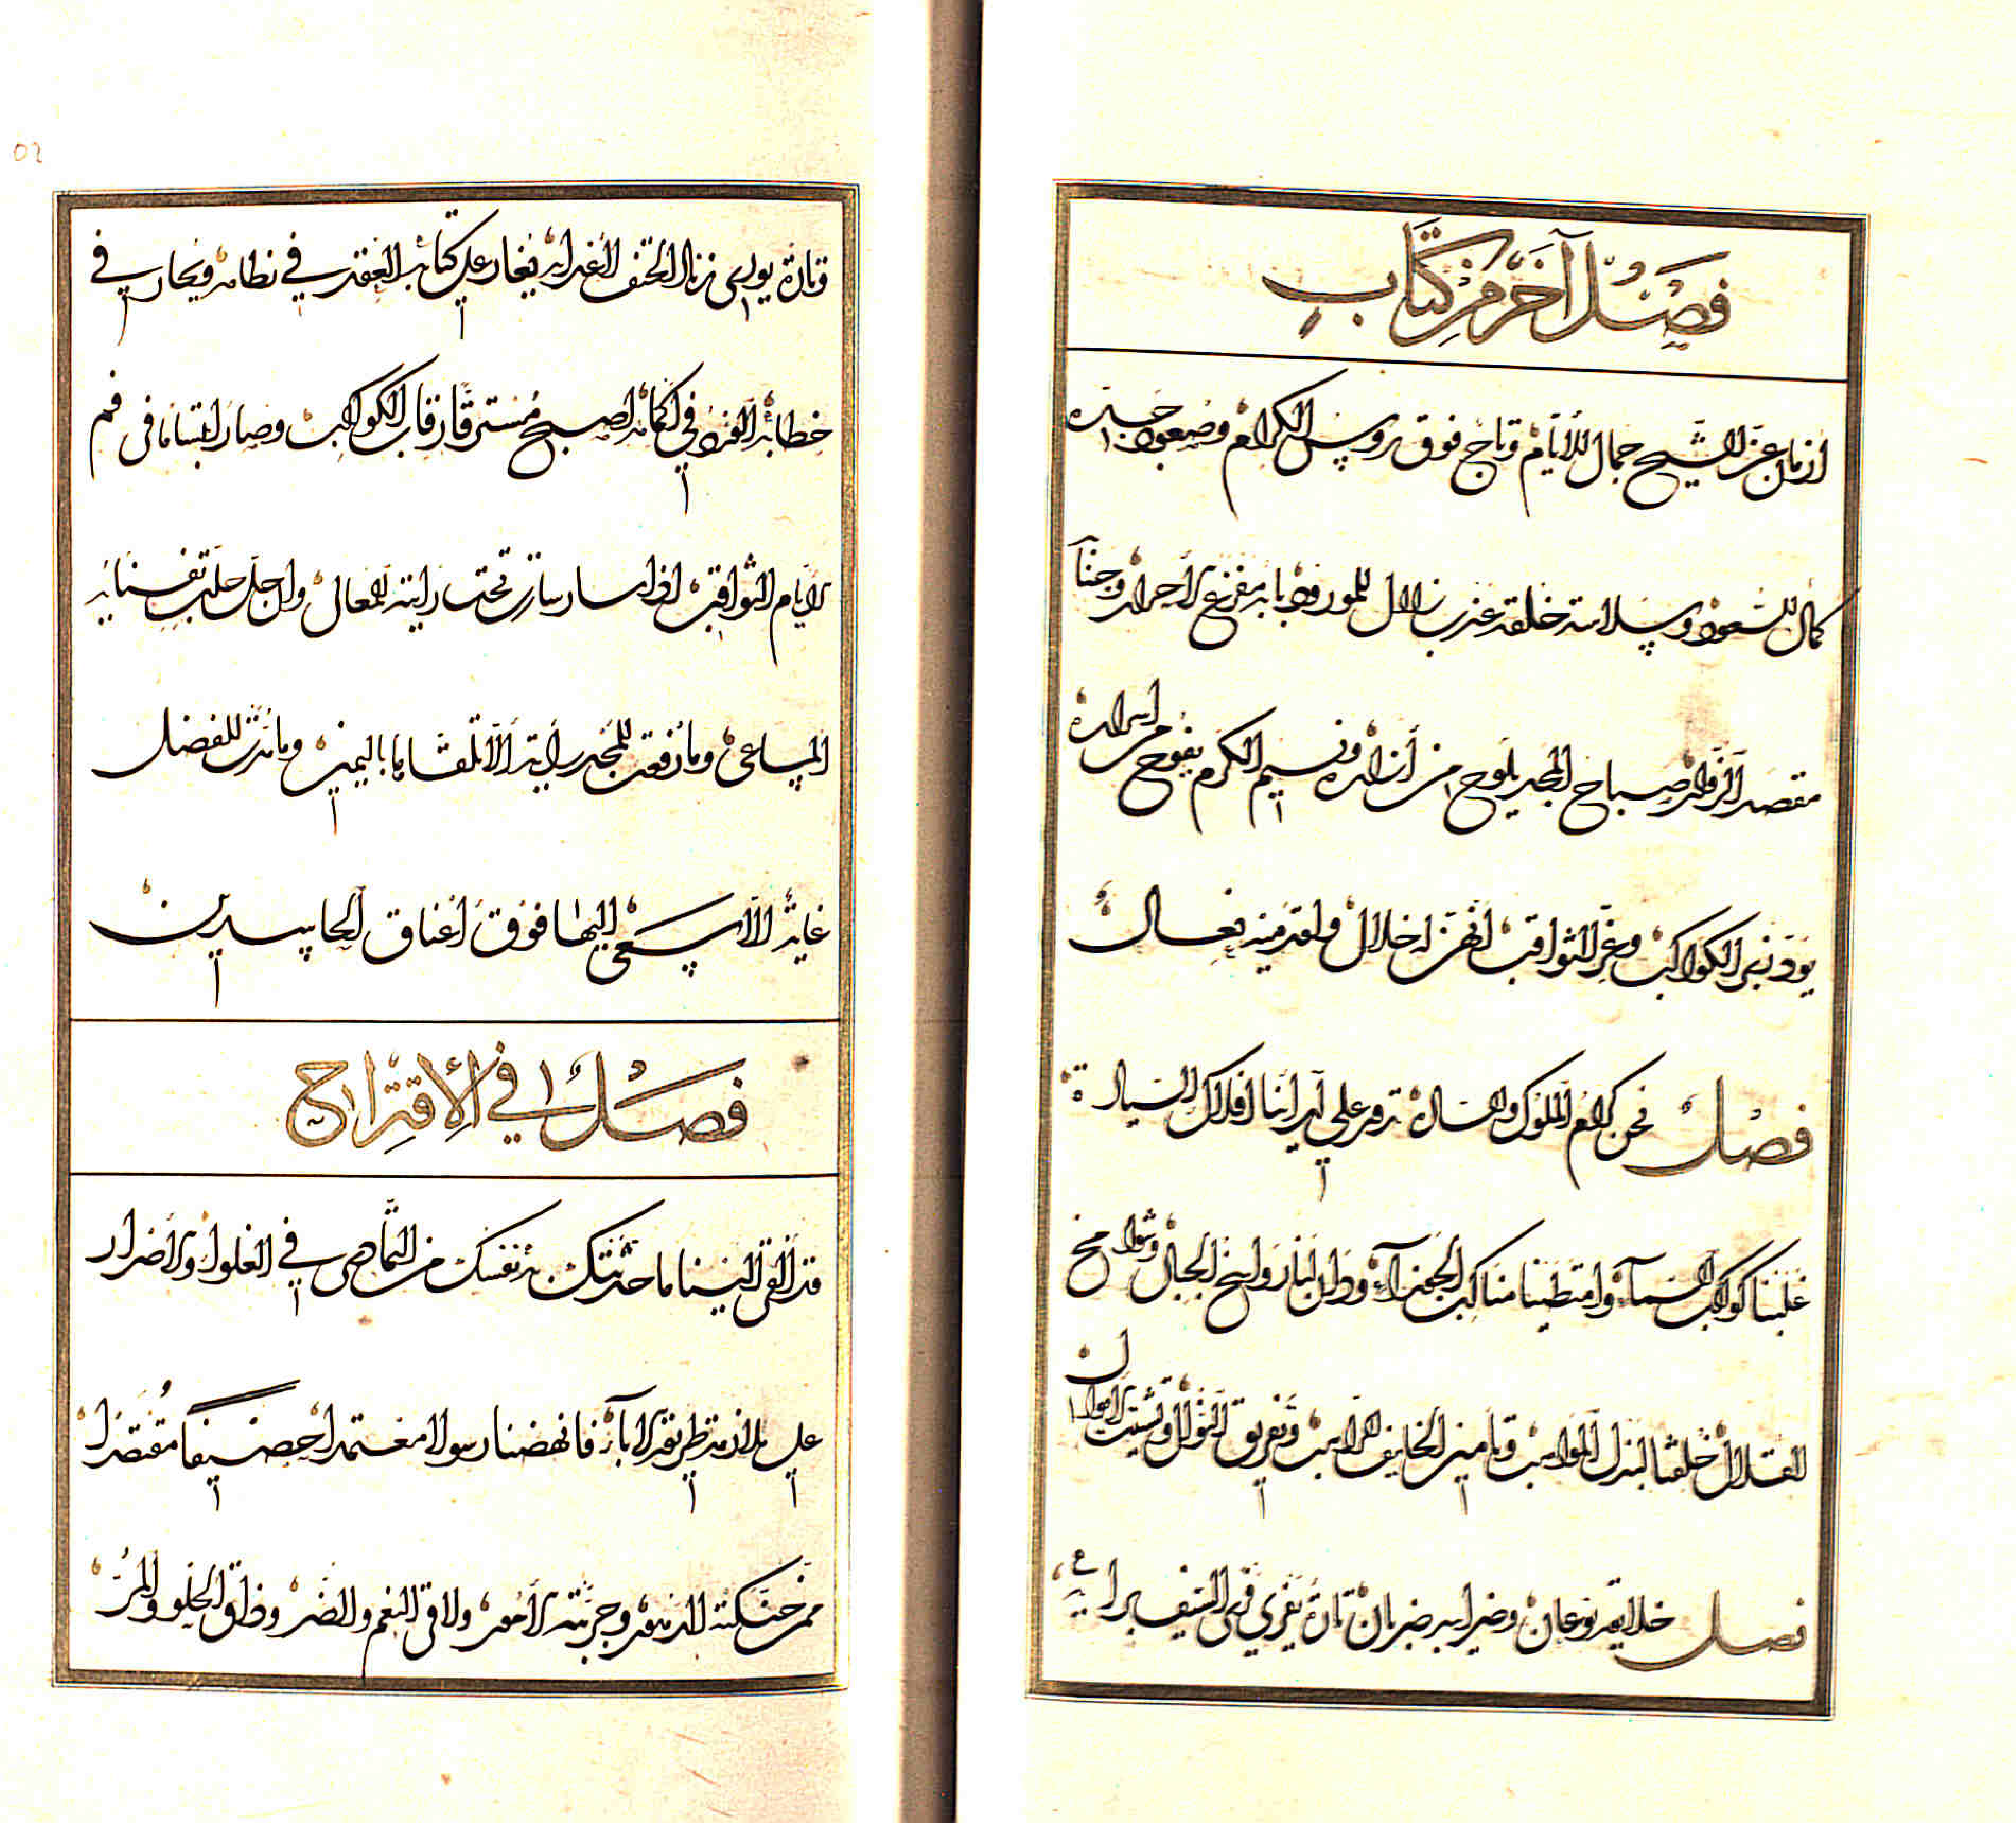 فصل آخر من كتاب
ازمان عز الشيخ جمال للأيام وتاج فوق رؤوس الكرام وصعود جده
كمال للسعود وسلاسة خلقه عذب زلال للمورود بابه مفزع الأحرار وجنابه
مقصد الزوار صباح المجد يلوح من أزراره ونسيم الكرم يفوح من اسراره
يود زهر الكواكب وغر الثواقب انهن له خلال ولقدميه نعال
فصل نحن كرام الملوك والسادة تدور على آرائنا افلاك السيادة
غلبنا كواكب السماء وامتطينا مناكب الجوزاء وطلنا رواسخ الجبال وشوامخ
القلال خلقنا لبذل المواهب وتأمين الخايف الراهب وتفريق النوال وتشتيت الاموال
فصل خلايقه نوعان وضرايبه ضربان تارة يفري فرى السيف براعة
وتارة يورى زناد الحتف يغار على كتابه العقد في نظامه ويحار في
خطابه الفرد في اكمامه اصبح مسترقا رقاب الكواكب وصار ابتساما في فم
الايام الثواقب اذا سار سارت تحت رايته المعالى وان جل حلت
المساعى وما رفعت للمجد راية الا تلقاها باليمين وما بدت للفضل
غاية الا سعى اليها فوق أعناق الحاسدين
فصل في الاقتراح
قد القى الينا ما حدثتك به نفسك من التمادى في الغلواء والاضرار
على ملازمة طريقة الاباء فانهضنا رسولا معتمدا حصيفا مقتصدا
ممن حنكته الدهور وجربته الامور ولاقى النعم والضر وذاق الحلو والمر